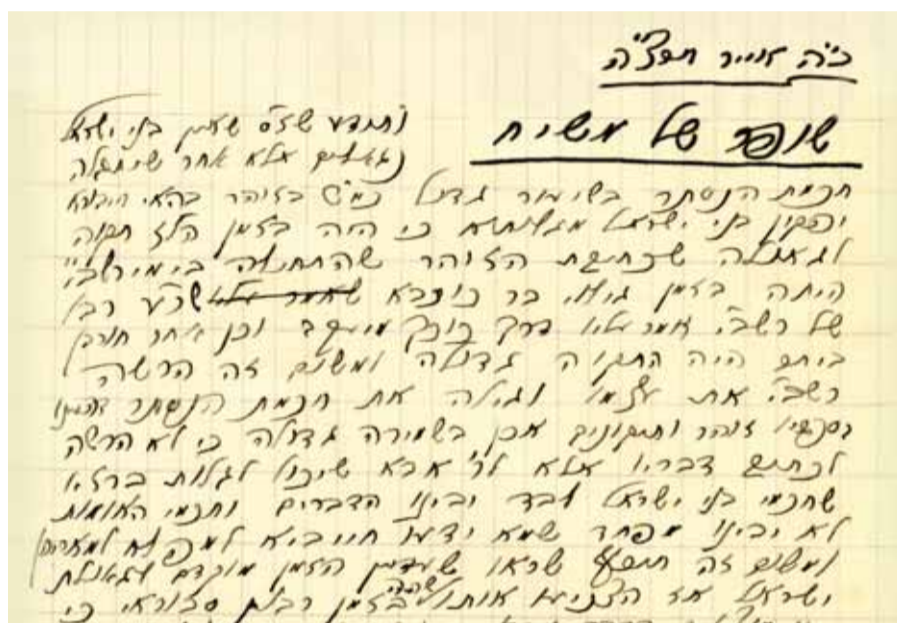 כ"ה אייר תרצ"ה
שופר של משיח
ותדע שז"ס שאין בני ישראל
נגאלים אלא אחר שיתגלה
חכמת הנסתר בשיעור גדול כמ"ש בזוהר בהאי חיבורא
יפקון בני ישראל מגלותא כי היה בזמן הלז תקוה
לגאולה שכתיבת הזוהר שהתחילה בימי רשב"י
היתה בזמן גילוי בר כוכבא שר"ע רבו
של רשב"י אמר עליו דרך כוכב מיעקב וכן אחר חורבן
ביתר היה התקוה גדולה ומשום זה הרשה
רשב"י את עצמו וגילה את חכמת הנסתר דהיינו
בספריו זוהר ותיקונים אכן בשמירה גדולה כי לא הרשה
לכתוב דבריו אלא לר' אבא שיכול לגלות ברזא
שחכמי בני ישראל לבד יבינו הדברים וחכמי האומות
לא יבינו מפחד שמא ידעו
ומשום זה תיכף שראו שעדיין הזמן מוקדם לגאולת
ישראל אז הצניעו אותו שהיה בזמן רבנן סבוראי כי